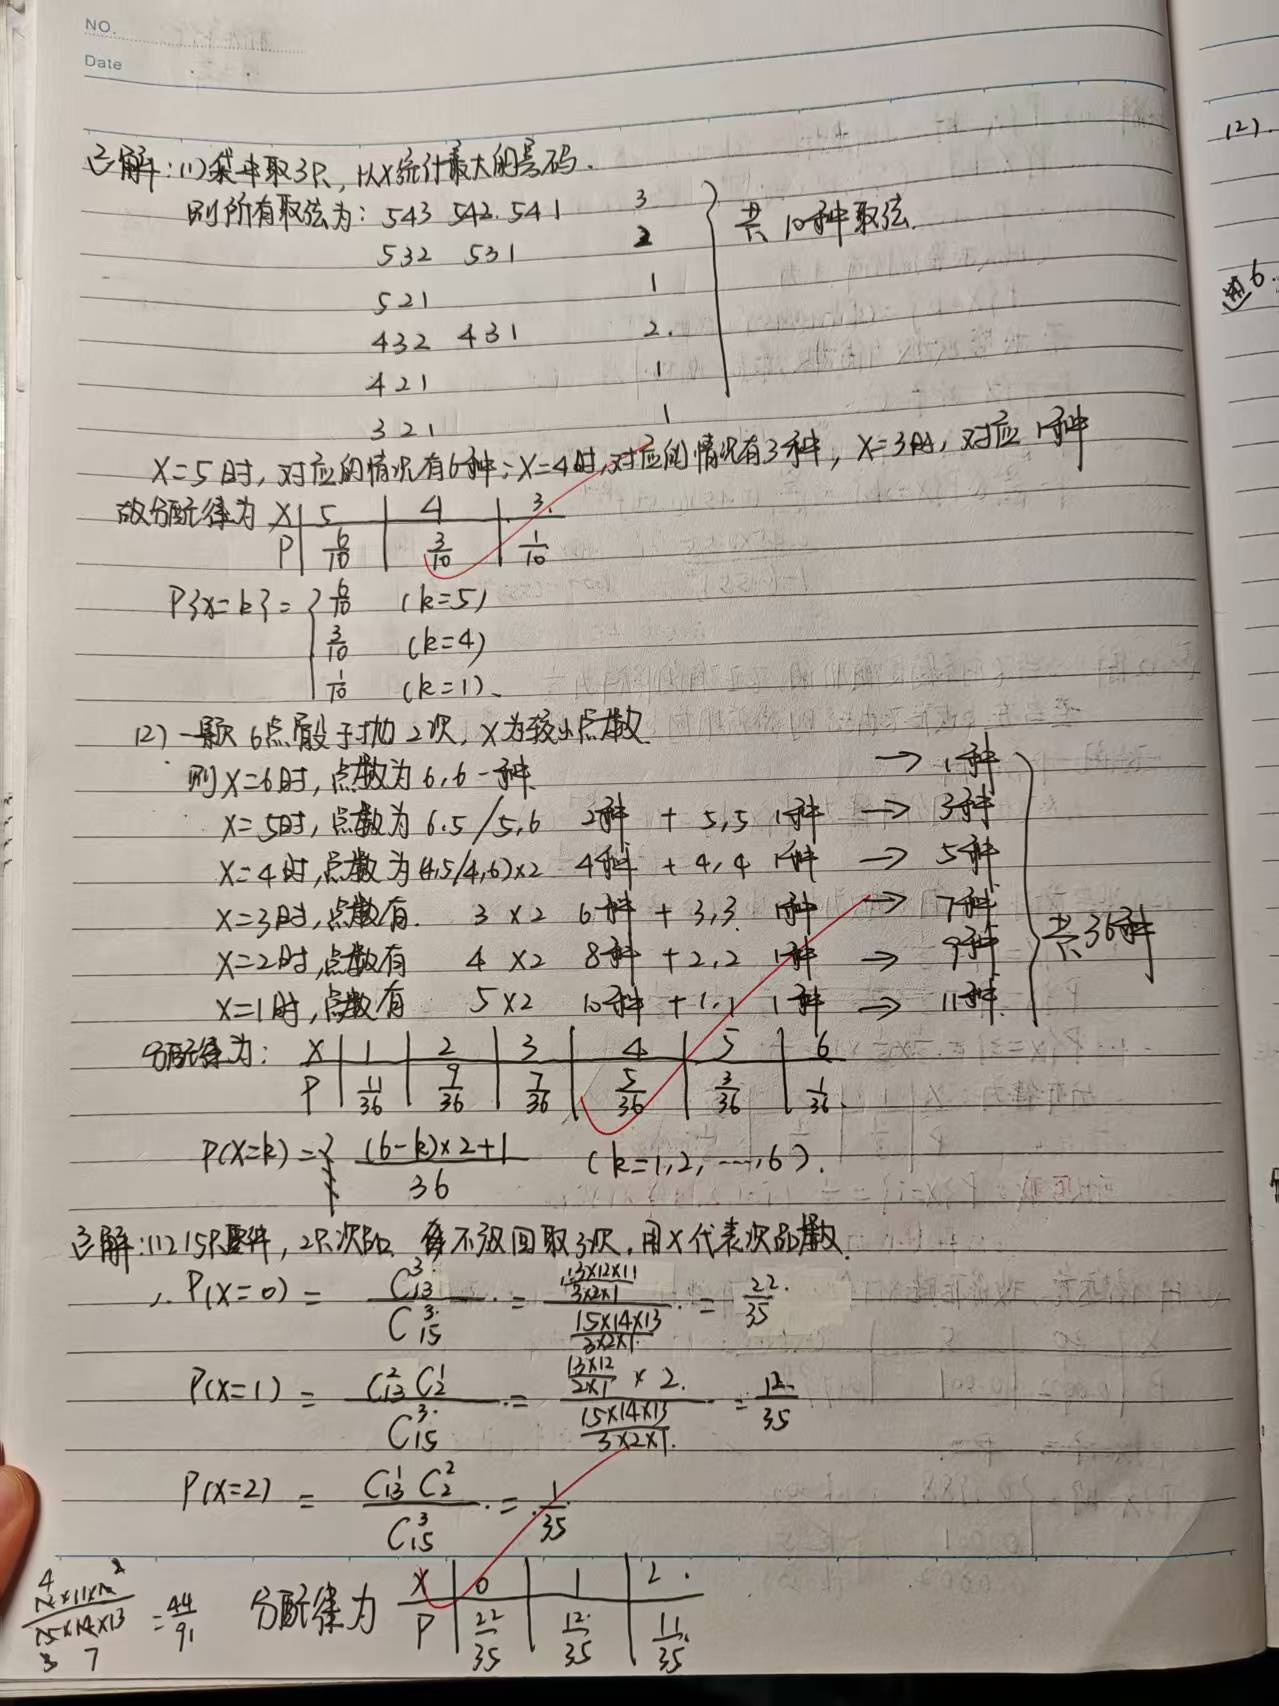 NO.
Date
解:(1)袋中取3只,以X统计最大的号码.
则所有取法为: 543 542. 541 3
532 531 2
共10种取法.
521 1
432 431 2.
421 1
321 1
X=5时,对应的情况有6种;X=4时,对应的情况有3种,X=3时,对应1种
故分配律为 X 5 4 3.
P 6/10 3/10 1/10
P{X=k}= { 6/10 (k=5)
3/10 (k=4)
1/10 (k=1).
(2) 一颗6点骰子抛2次,X为较小点数.
则X=6时,点数为6,6一种. → 1种
X=5时,点数为6.5/5,6 2种 + 5,5 1种 → 3种
X=4时,点数为(4,5/4,6)×2 4种 + 4,4 1种 → 5种
X=3时,点数有. 3×2 6种 + 3,3. 1种 → 7种
共36种
X=2时,点数有 4×2 8种 + 2,2 1种 → 9种
X=1时,点数有 5×2 10种 + 1,1 1种 → 11种.
分配律为: X 1 2 3 4 5 6
P 11/36 9/36 7/36 5/36 3/36 1/36.
P(X=k) = (6-k)×2+1 / 36 (k=1,2,…,6).
解:(1) 15只零件,2只次品. 不放回取3次,用X代表次品数.
∴ P(X=0) = C₁₃³ / C₁₅³ = (13×12×11 / 3×2×1) / (15×14×13 / 3×2×1) = 22/35
P(X=1) = C₁₃² C₂¹ / C₁₅³ = (13×12 / 2×1 × 2) / (15×14×13 / 3×2×1) = 12/35
P(X=2) = C₁₃¹ C₂² / C₁₅³ = 1/35
分配律为 X 0 1 2.
P 22/35 12/35 11/35
= 44/91
15×14×13
3 7
(2).
6.